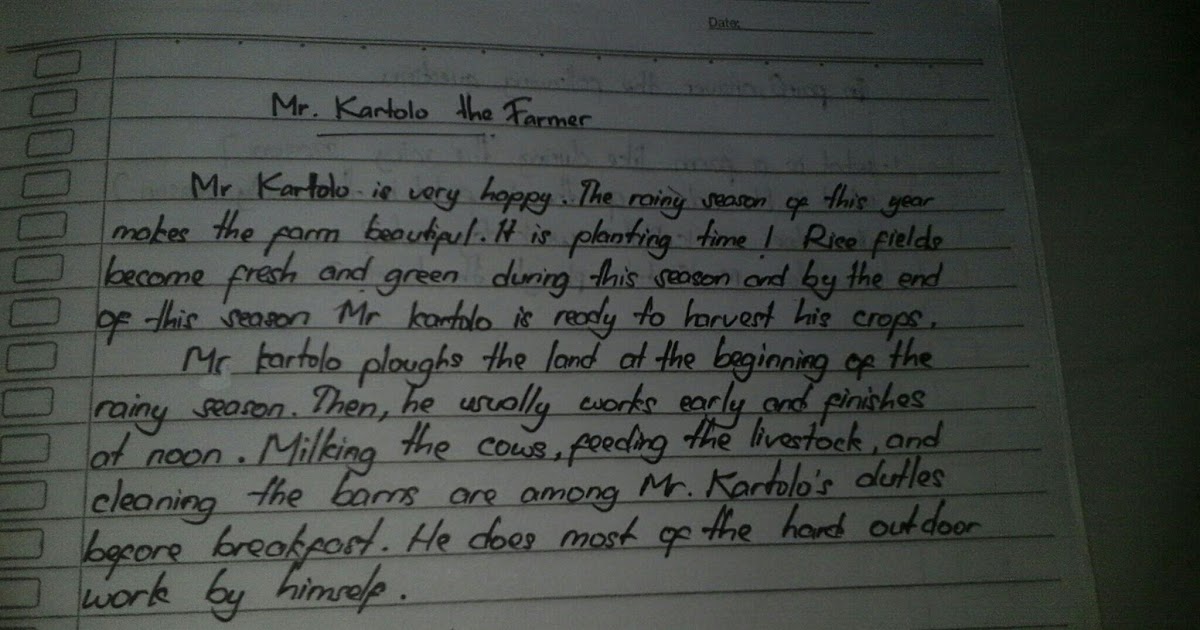 Date:
Mr. Kartolo the Farmer
Mr Kartolo is very happy. The rainy season of this year
makes the farm beautiful. It is planting time! Rice fields
become fresh and green during this season and by the end
of this season Mr kartolo is ready to harvest his crops.
Mr kartolo ploughs the land at the beginning of the
rainy season. Then, he usually works early and finishes
at noon. Milking the cows, feeding the livestock, and
cleaning the barns are among Mr. Kartolo's duties
before breakfast. He does most of the hard outdoor
work by himself.